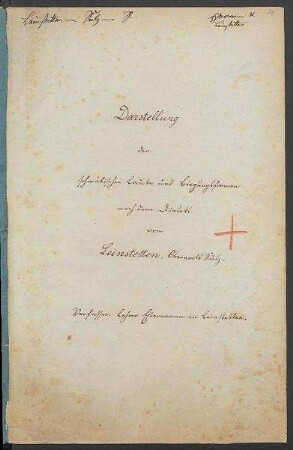 Leinstetten — Sulz — S.
Darstellung
der
schwäbischen Laute und Biegungsformen
nach dem Dialekt
von
Leinstetten, Oberamts Sulz.
Verfasser: Lehrer in Leinstetten.